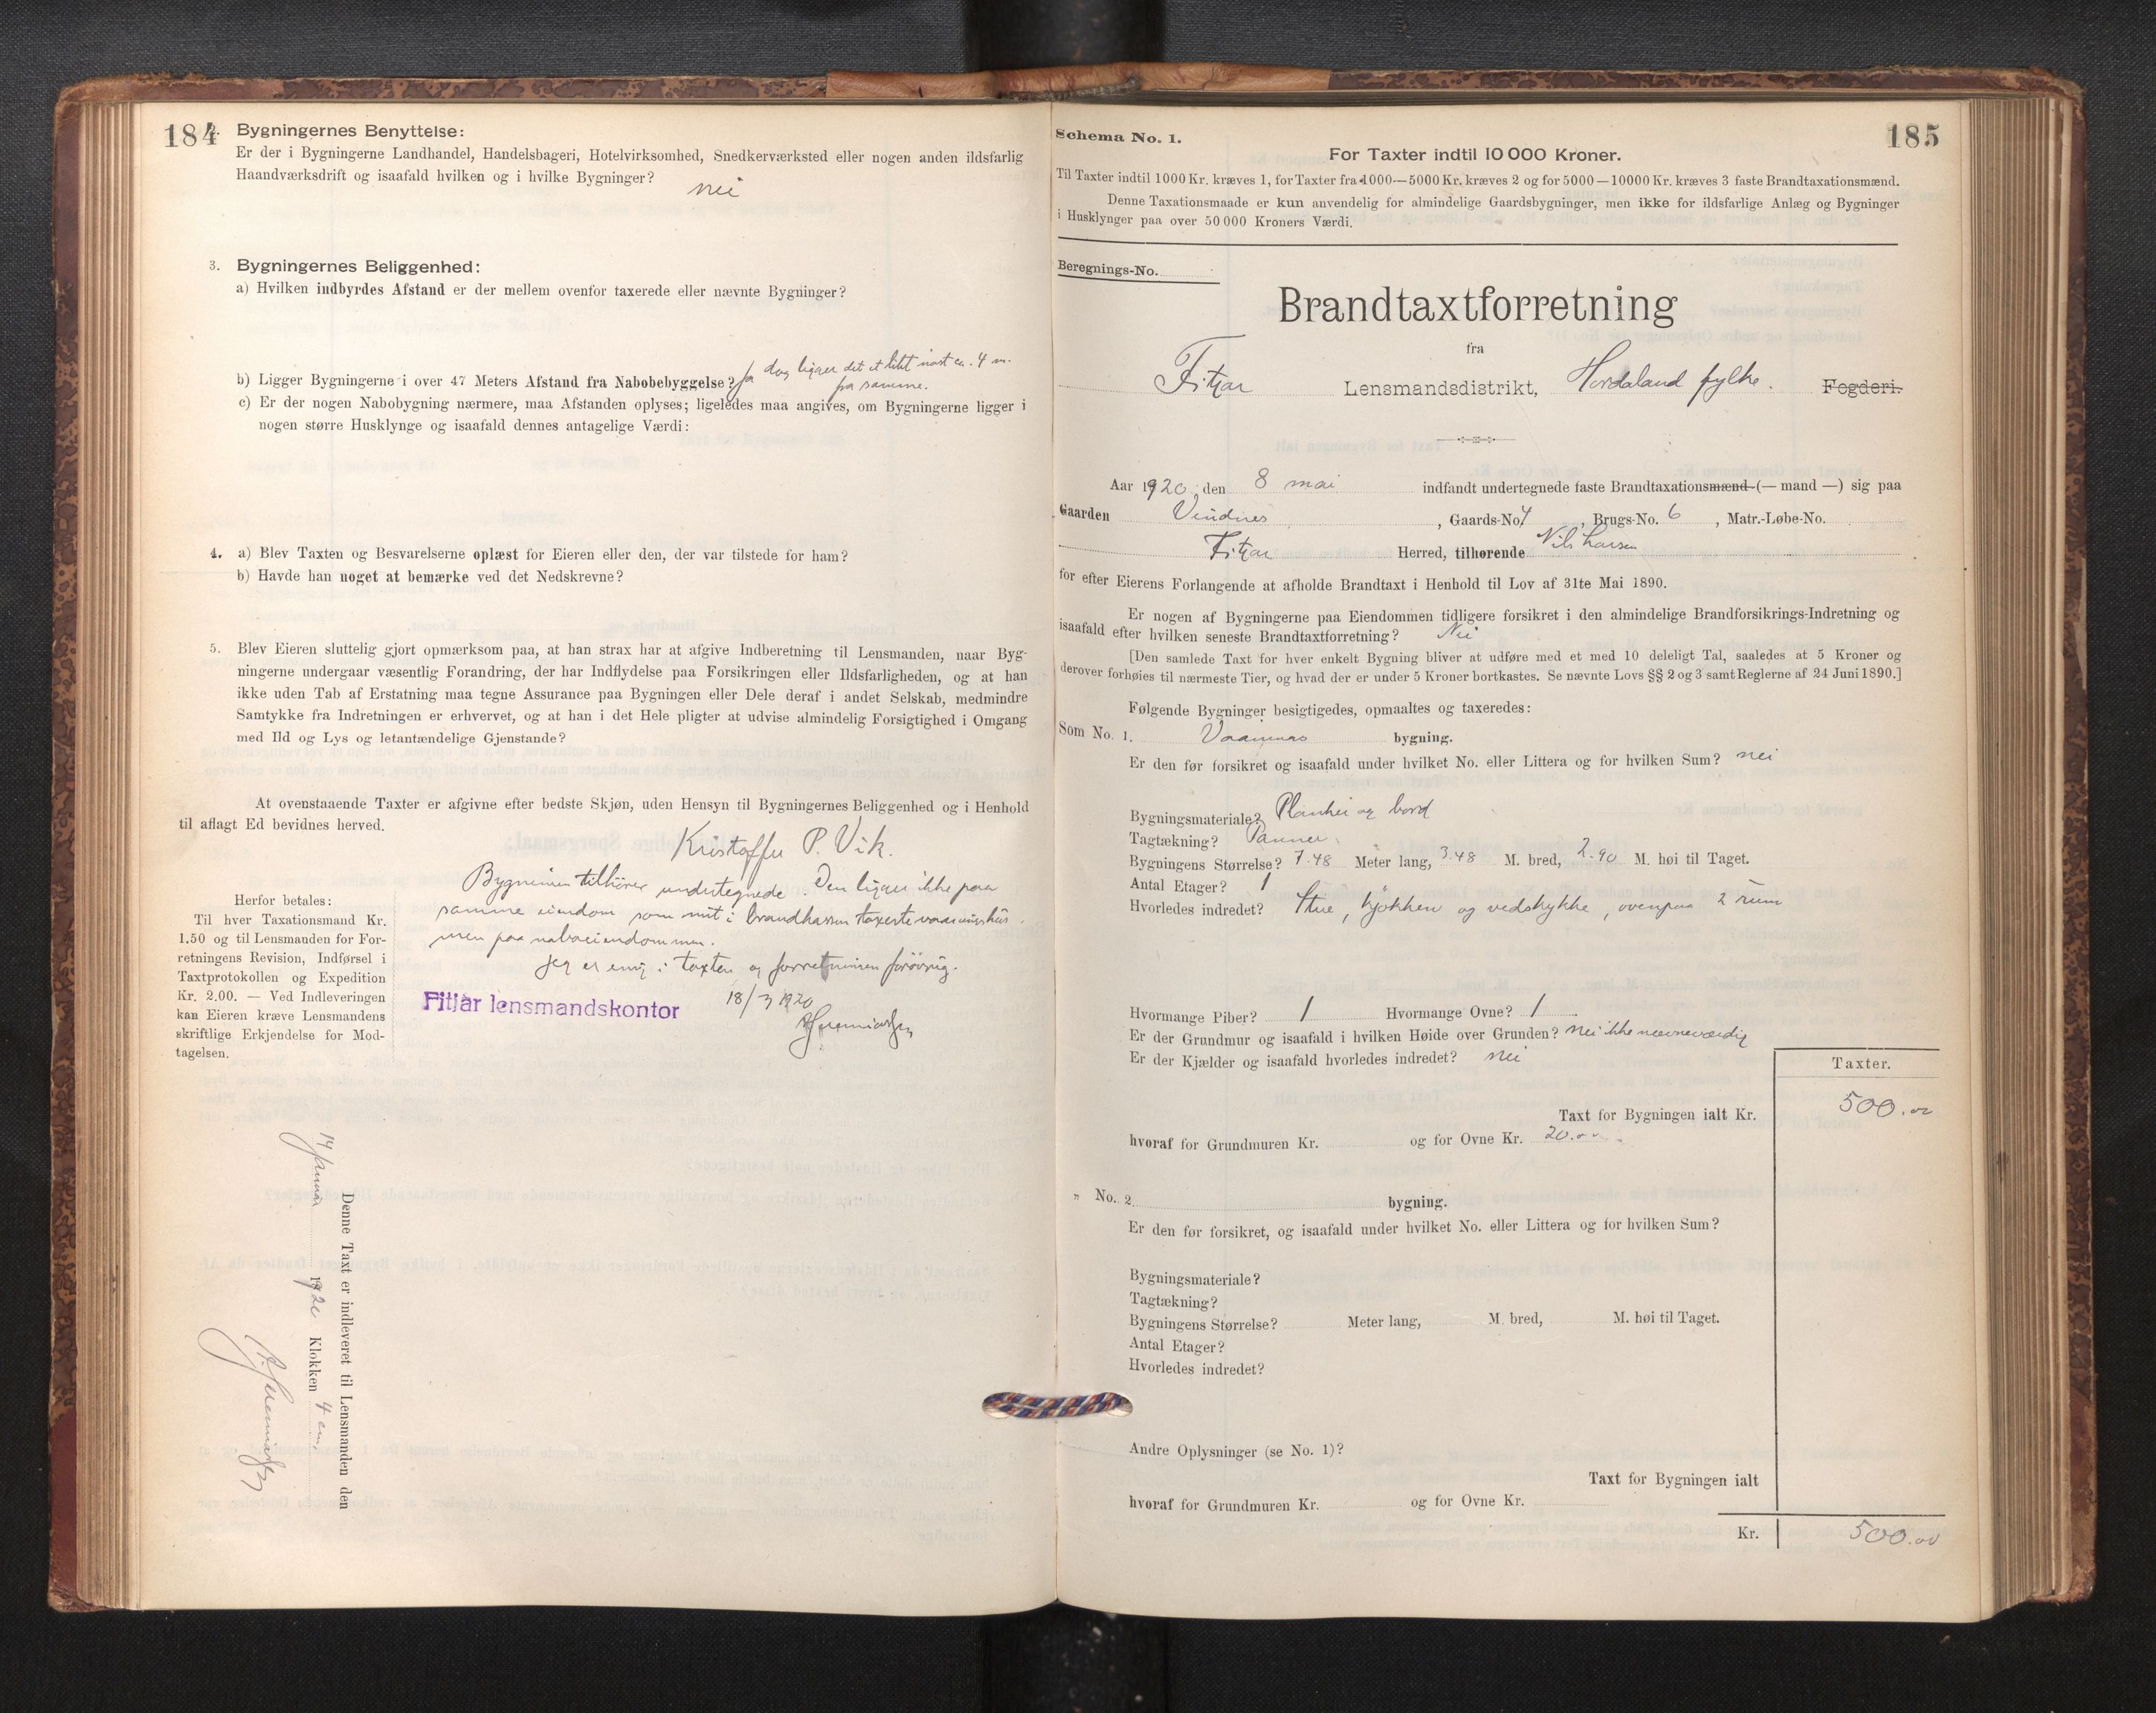 184
2. Bygningernes Benyttelse:
Er der i Bygningerne Landhandel, Handelsbageri, Hotelvirksomhed, Snedkerværksted eller nogen anden ildsfarlig
Haandværksdrift og isaafald hvilken og i hvilke Bygninger? nei
3. Bygningernes Beliggenhed:
a) Hvilken indbyrdes Afstand er der mellem ovenfor taxerede eller nævnte Bygninger?
b) Ligger Bygningerne i over 47 Meters Afstand fra Nabobebyggelse? ja dog ligger det et litet nøst ca. 4 m.
fra samme.
c) Er der nogen Nabobygning nærmere, maa Afstanden oplyses; ligeledes maa angives, om Bygningerne ligger i
nogen større Husklynge og isaafald dennes antagelige Værdi:
4. a) Blev Taxten og Besvarelserne oplæst for Eieren eller den, der var tilstede for ham?
b) Havde han noget at bemærke ved det Nedskrevne?
5. Blev Eieren sluttelig gjort opmærksom paa, at han strax har at afgive Indberetning til Lensmanden, naar Byg-
ningerne undergaar væsentlig Forandring, der har Indflydelse paa Forsikringen eller Ildsfarligheden, og at han
ikke uden Tab af Erstatning maa tegne Assurance paa Bygningen eller Dele deraf i andet Selskab, medmindre
Samtykke fra Indretningen er erhvervet, og at han i det Hele pligter at udvise almindelig Forsigtighed i Omgang
med Ild og Lys og letantændelige Gjenstande?
At ovenstaaende Taxter er afgivne efter bedste Skjøn, uden Hensyn til Bygningernes Beliggenhed og i Henhold
til aflagt Ed bevidnes herved.
Kristoffer P. Vik.
Bygningen tilhører undertegnede. Den ligger ikke paa
samme eiendom som mit i brandkassen taxerte vaaningshus
men paa naboeiendommen.
Jeg er enig i taxten og forretningen forøvrig.
Fitjar lensmandskontor 18/3 1920
Herfor betales:
Til hver Taxationsmand Kr.
1.50 og til Lensmanden for For-
retningens Revision, Indførsel i
Taxtprotokollen og Expedition
Kr. 2.00. — Ved Indleveringen
kan Eieren kræve Lensmandens
skriftlige Erkjendelse for Mod-
tagelsen.
Denne Taxt er indleveret til Lensmanden den
14 januar 1921 Klokken 4 em.
185
Schema No. 1.
For Taxter indtil 10 000 Kroner.
Til Taxter indtil 1000 Kr. kræves 1, for Taxter fra 1000—5000 Kr. kræves 2 og for 5000—10000 Kr. kræves 3 faste Brandtaxationsmænd.
Denne Taxationsmaade er kun anvendelig for almindelige Gaardsbygninger, men ikke for ildsfarlige Anlæg og Bygninger
i Husklynger paa over 50 000 Kroners Værdi.
Beregnings-No.
Brandtaxtforretning
fra
Fitjar Lensmandsdistrikt, Hordaland fylke. Fogderi.
Aar 1920, den 8 mai indfandt undertegnede faste Brandtaxationsmænd (— mand —) sig paa
Gaarden Vindnes, Gaards-No. 4, Brugs-No. 6, Matr.-Løbe-No.
Fitjar Herred, tilhørende Nils Larsen
for efter Eierens Forlangende at afholde Brandtaxt i Henhold til Lov af 31te Mai 1890.
Er nogen af Bygningerne paa Eiendommen tidligere forsikret i den almindelige Brandforsikrings-Indretning og
isaafald efter hvilken seneste Brandtaxtforretning? Nei
[Den samlede Taxt for hver enkelt Bygning bliver at udføre med et med 10 deleligt Tal, saaledes at 5 Kroner og
derover forhøies til nærmeste Tier, og hvad der er under 5 Kroner bortkastes. Se nævnte Lovs §§ 2 og 3 samt Reglerne af 24 Juni 1890.]
Følgende Bygninger besigtigedes, opmaaltes og taxeredes:
Som No. 1. Vaanings bygning.
Er den før forsikret og isaafald under hvilket No. eller Littera og for hvilken Sum? nei
Bygningsmateriale? Planker og bord
Tagtækning? Panner
Bygningens Størrelse? 7.48 Meter lang, 3.48 M. bred, 2.90 M. høi til Taget.
Antal Etager? 1
Hvorledes indredet? Stue, kjøkken og vedskykke, ovenpaa 2 rum
Hvormange Piber? 1 Hvormange Ovne? 1
Er der Grundmur og isaafald i hvilken Høide over Grunden? nei ikke nævneværdig
Er der Kjælder og isaafald hvorledes indredet? nei
Taxter.
Taxt for Bygningen ialt Kr. 500.00
hvoraf for Grundmuren Kr. og for Ovne Kr. 20.00
" No. 2 bygning.
Er den før forsikret, og isaafald under hvilket No. eller Littera og for hvilken Sum?
Bygningsmateriale?
Tagtækning?
Bygningens Størrelse? Meter lang, M. bred, M. høi til Taget.
Antal Etager?
Hvorledes indredet?
Andre Oplysninger (se No. 1)?
Taxt for Bygningen ialt
hvoraf for Grundmuren Kr. og for Ovne Kr.
Kr. 500.00